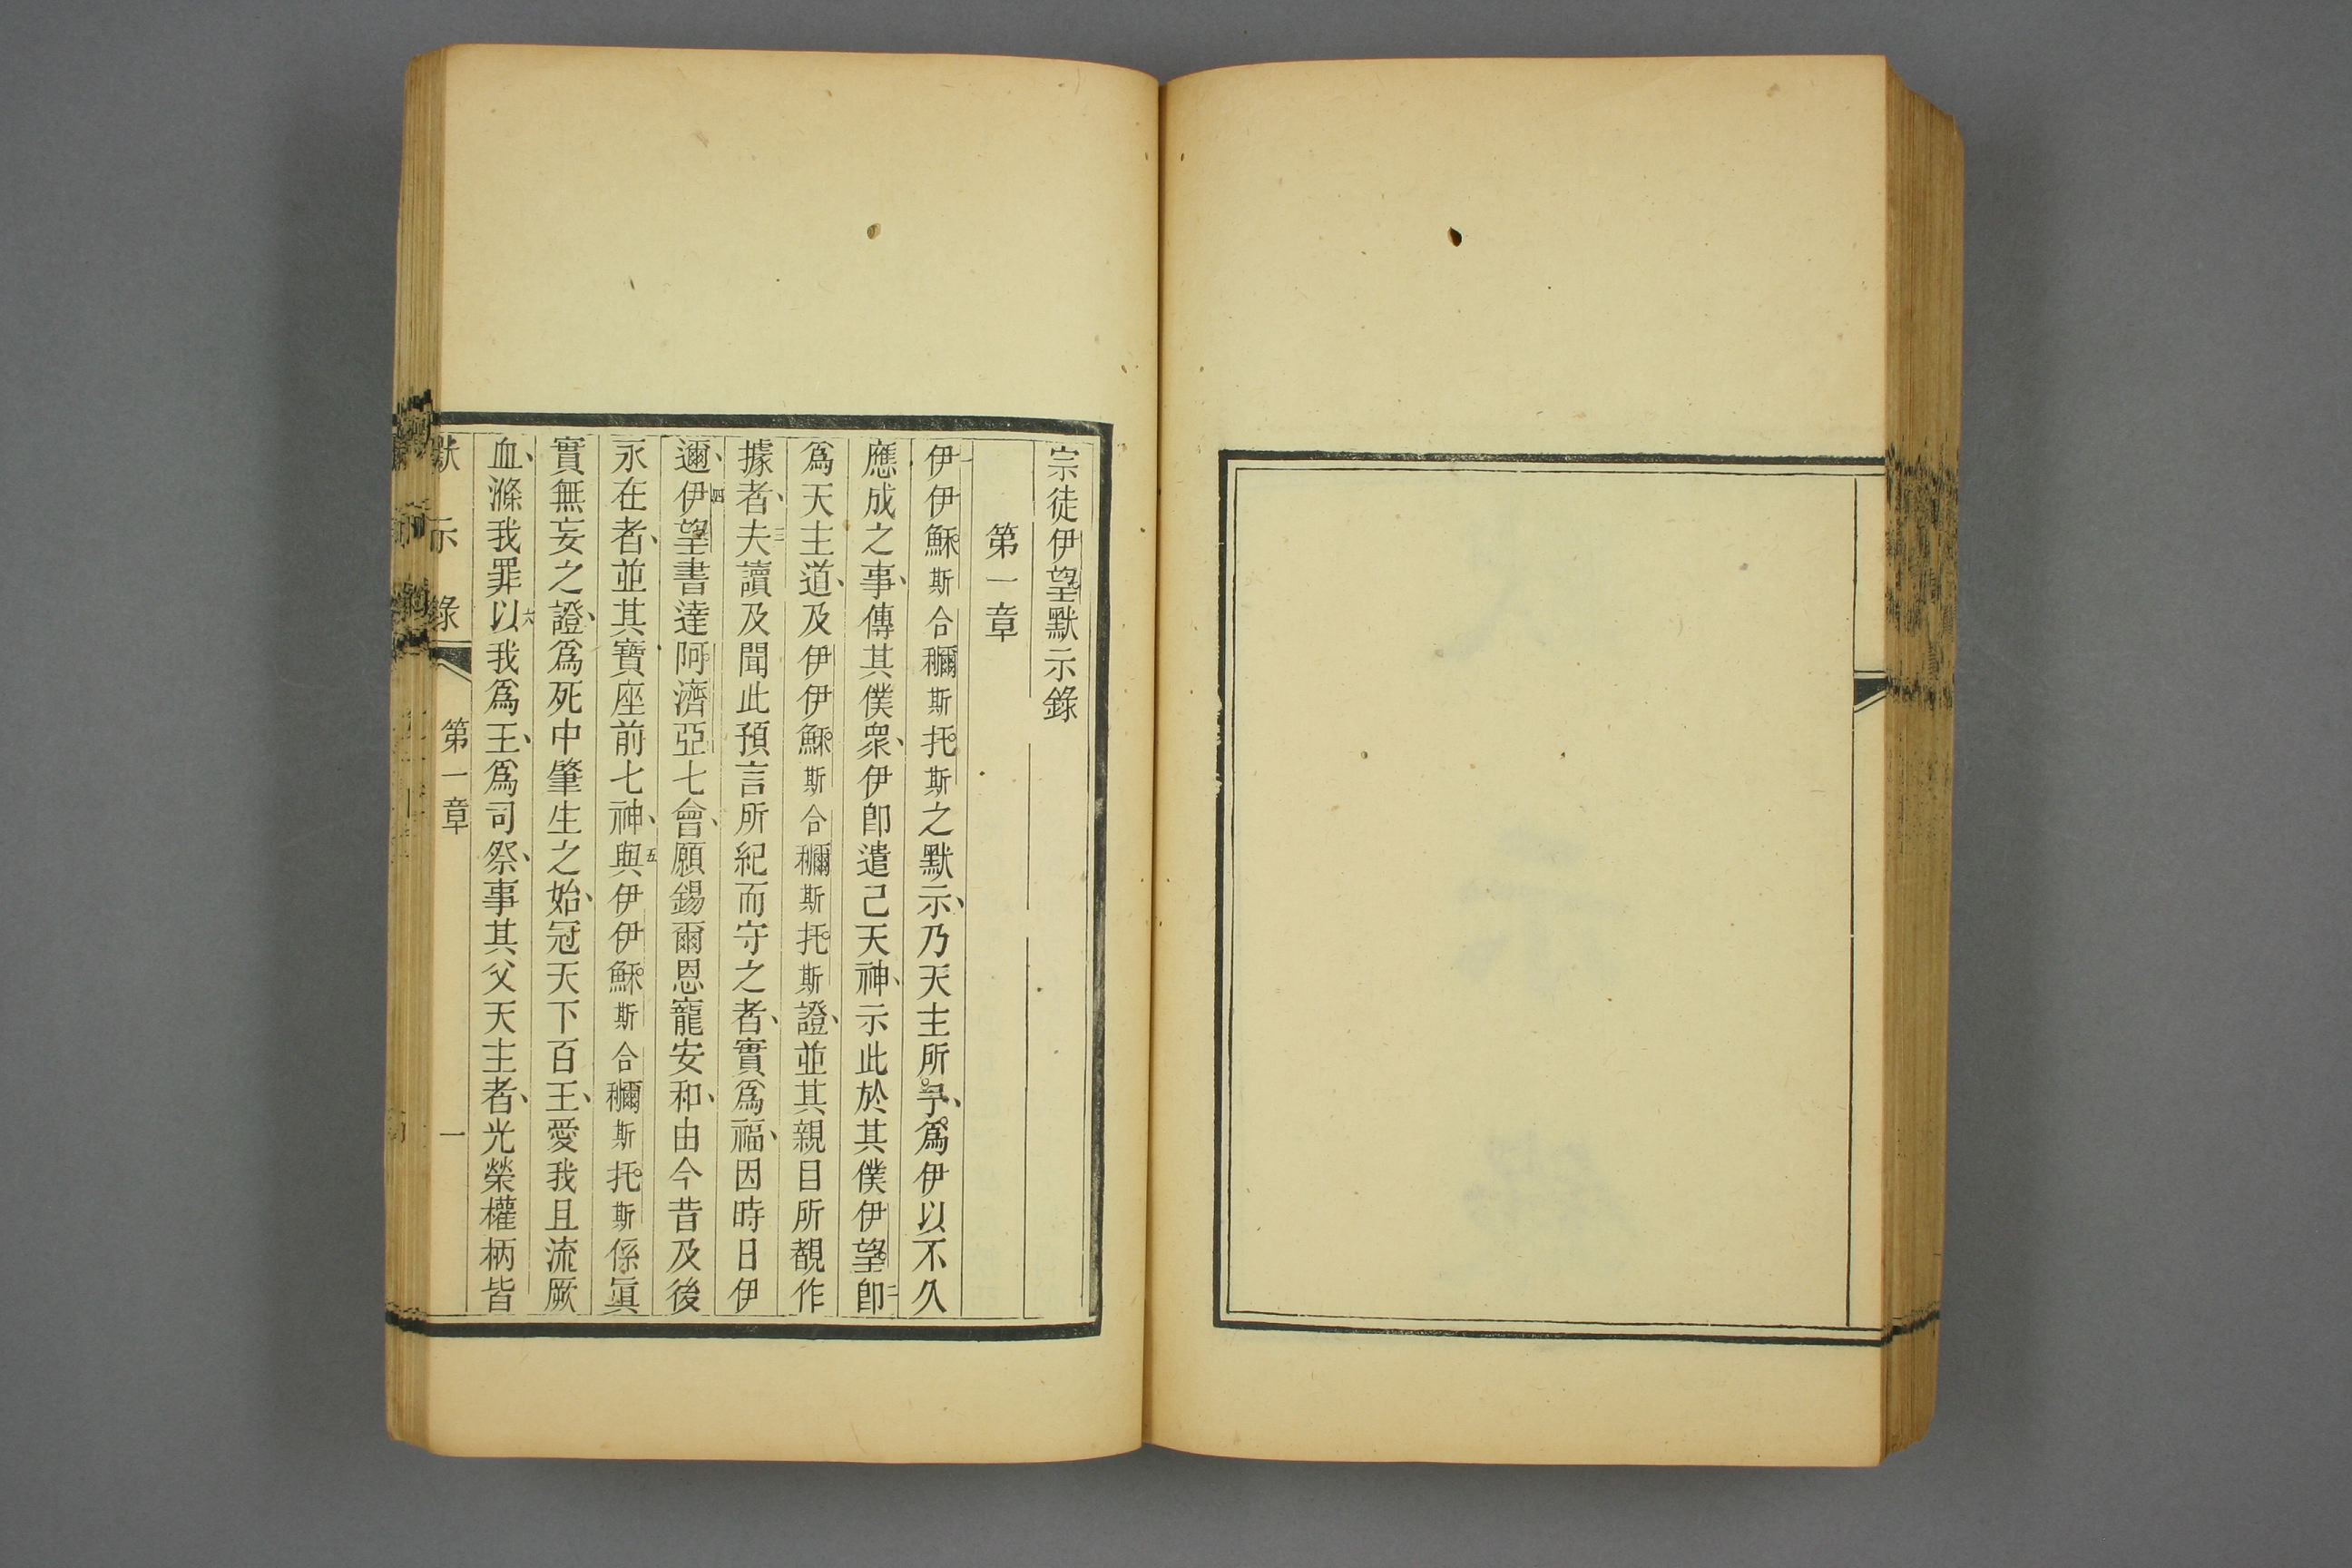 宗徒伊望默示錄
第一章
一伊伊穌斯合穪斯托斯之默示、乃天主所予、爲伊以不久
應成之事、傳其僕衆、伊卽遣己天神、示此於其僕伊望、二卽
爲天主道、及伊伊穌斯合穪斯托斯證、並其親目所覩作
據者、三夫讀及聞此預言所紀而守之者、實爲福、因時日伊
邇、四伊望書達阿濟亞七會、願錫爾恩寵安和、由今昔及後
永在者、並其寶座前七神、五與伊伊穌斯合穪斯托斯係眞
實無妄之證、爲死中肇生之始、冠天下百王、愛我且流厥
血、滌我罪、六以我爲王、爲司祭、事其父天主者、光榮權柄皆
默示錄 第一章 一